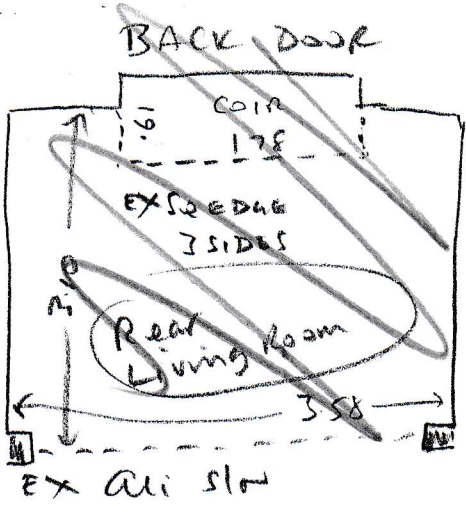 BACK DOOR
COIR
.61
178
EX SQ EDGE
3 SIDES
Rear
Living Room
3.58
EX ali slw